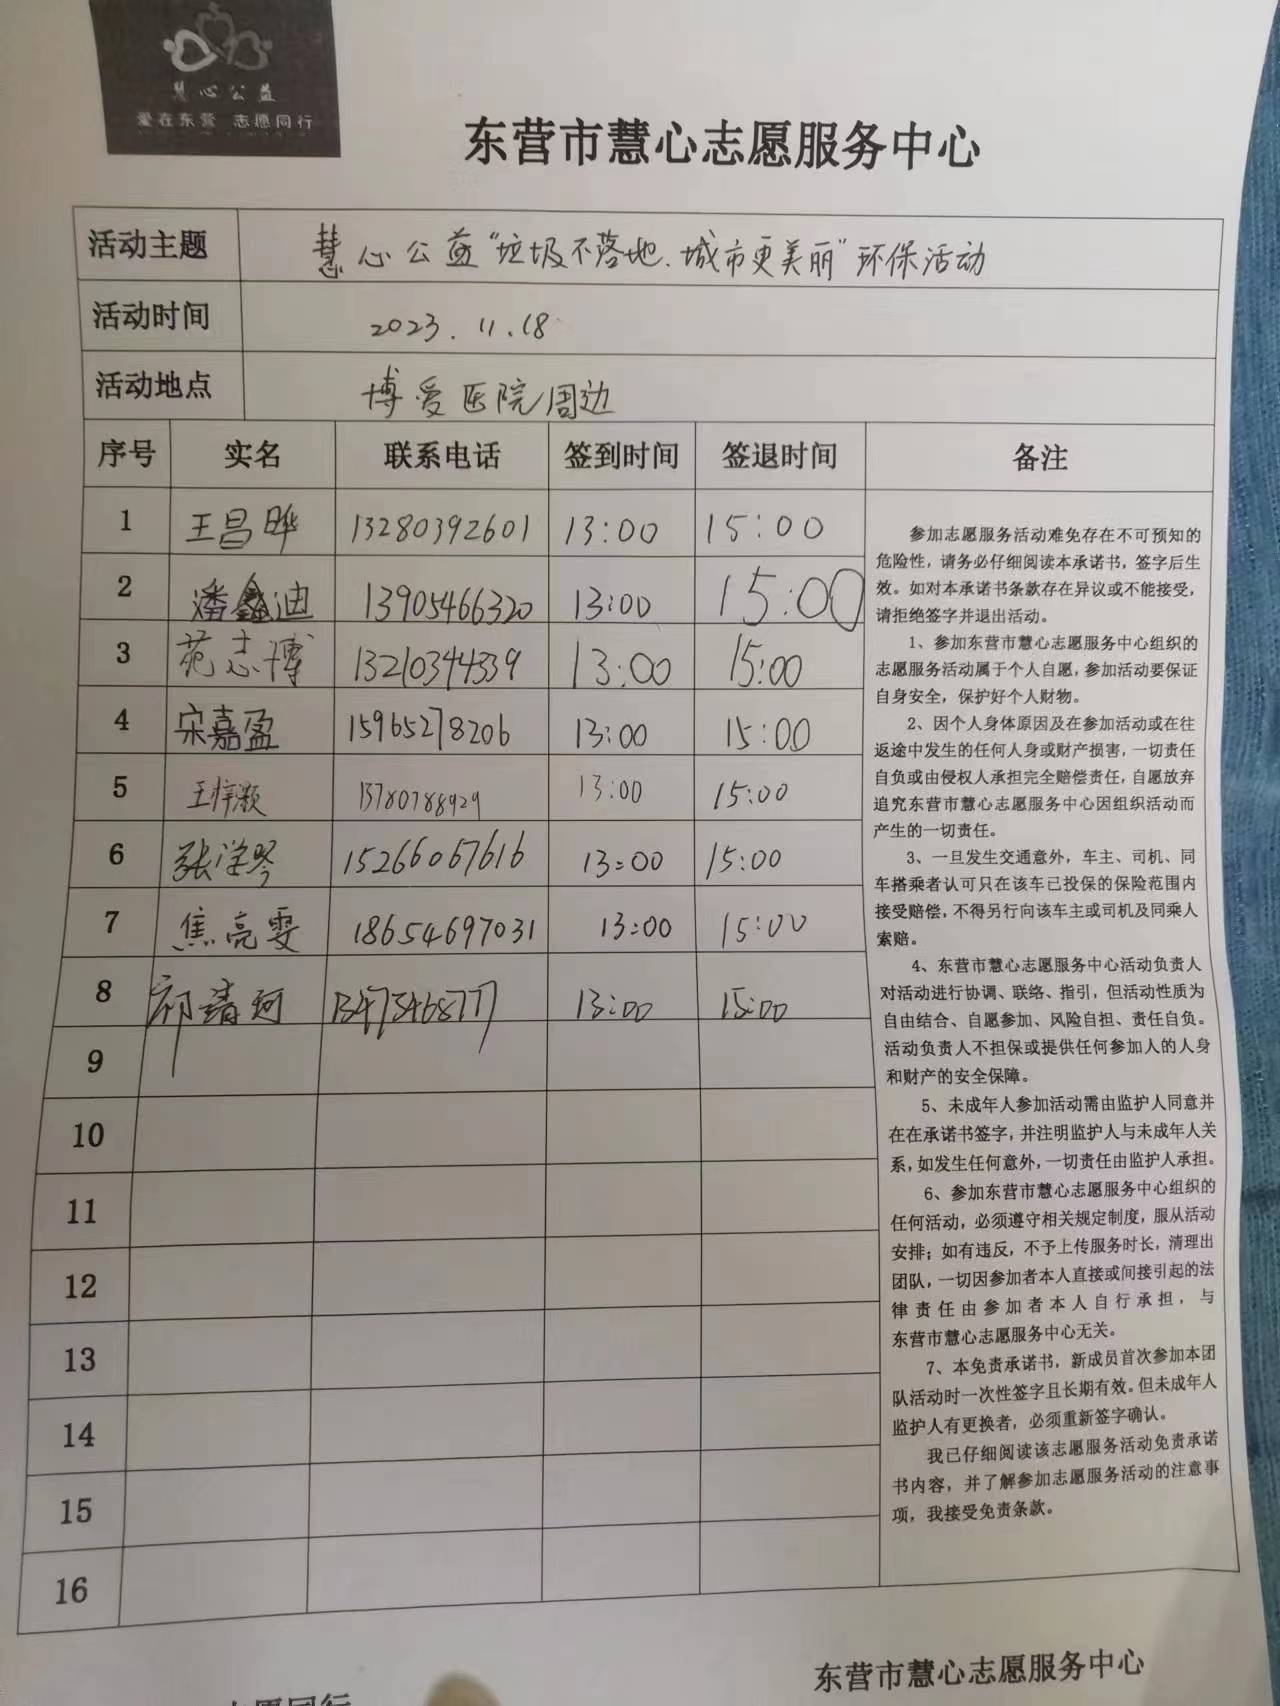 慧心公益
爱在东营 志愿同行
东营市慧心志愿服务中心
活动主题 慧心公益“垃圾不落地、城市更美丽”环保活动
活动时间 2023.11.18
活动地点 博爱医院周边
序号 实名 联系电话 签到时间 签退时间 备注
1 王昌晔 13280392601 13:00 15:00
2 潘鑫迪 13905466320 13:00 15:00
3 苑志博 13210344339 13:00 15:00
4 宋嘉盈 15965278206 13:00 15:00
5 王梓灏 13780788929 13:00 15:00
6 张洋琴 15266067616 13:00 15:00
7 焦亮雯 18654697031 13:00 15:00
8 祁靖珂 13:00 15:00
9
10
11
12
13
14
15
16
参加志愿服务活动难免存在不可预知的
危险性，请务必仔细阅读本承诺书，签字后生
效。如对本承诺书条款存在异议或不能接受，
请拒绝签字并退出活动。
1、参加东营市慧心志愿服务中心组织的
志愿服务活动属于个人自愿，参加活动要保证
自身安全，保护好个人财物。
2、因个人身体原因及在参加活动或在往
返途中发生的任何人身或财产损害，一切责任
自负或由侵权人承担完全赔偿责任，自愿放弃
追究东营市慧心志愿服务中心因组织活动而
产生的一切责任。
3、一旦发生交通意外，车主、司机、同
车搭乘者认可只在该车已投保的保险范围内
接受赔偿，不得另行向该车主或司机及同乘人
索赔。
4、东营市慧心志愿服务中心活动负责人
对活动进行协调、联络、指引，但活动性质为
自由结合、自愿参加、风险自担、责任自负。
活动负责人不担保或提供任何参加人的人身
和财产的安全保障。
5、未成年人参加活动需由监护人同意并
在在承诺书签字，并注明监护人与未成年人关
系，如发生任何意外，一切责任由监护人承担。
6、参加东营市慧心志愿服务中心组织的
任何活动，必须遵守相关规定制度，服从活动
安排；如有违反，不予上传服务时长，清理出
团队，一切因参加者本人直接或间接引起的法
律责任由参加者本人自行承担，与
东营市慧心志愿服务中心无关。
7、本免责承诺书，新成员首次参加本团
队活动时一次性签字且长期有效。但未成年人
监护人有更换者，必须重新签字确认。
我已仔细阅读该志愿服务活动免责承诺
书内容，并了解参加志愿服务活动的注意事
项，我接受免责条款。
东营市慧心志愿服务中心
志愿同行